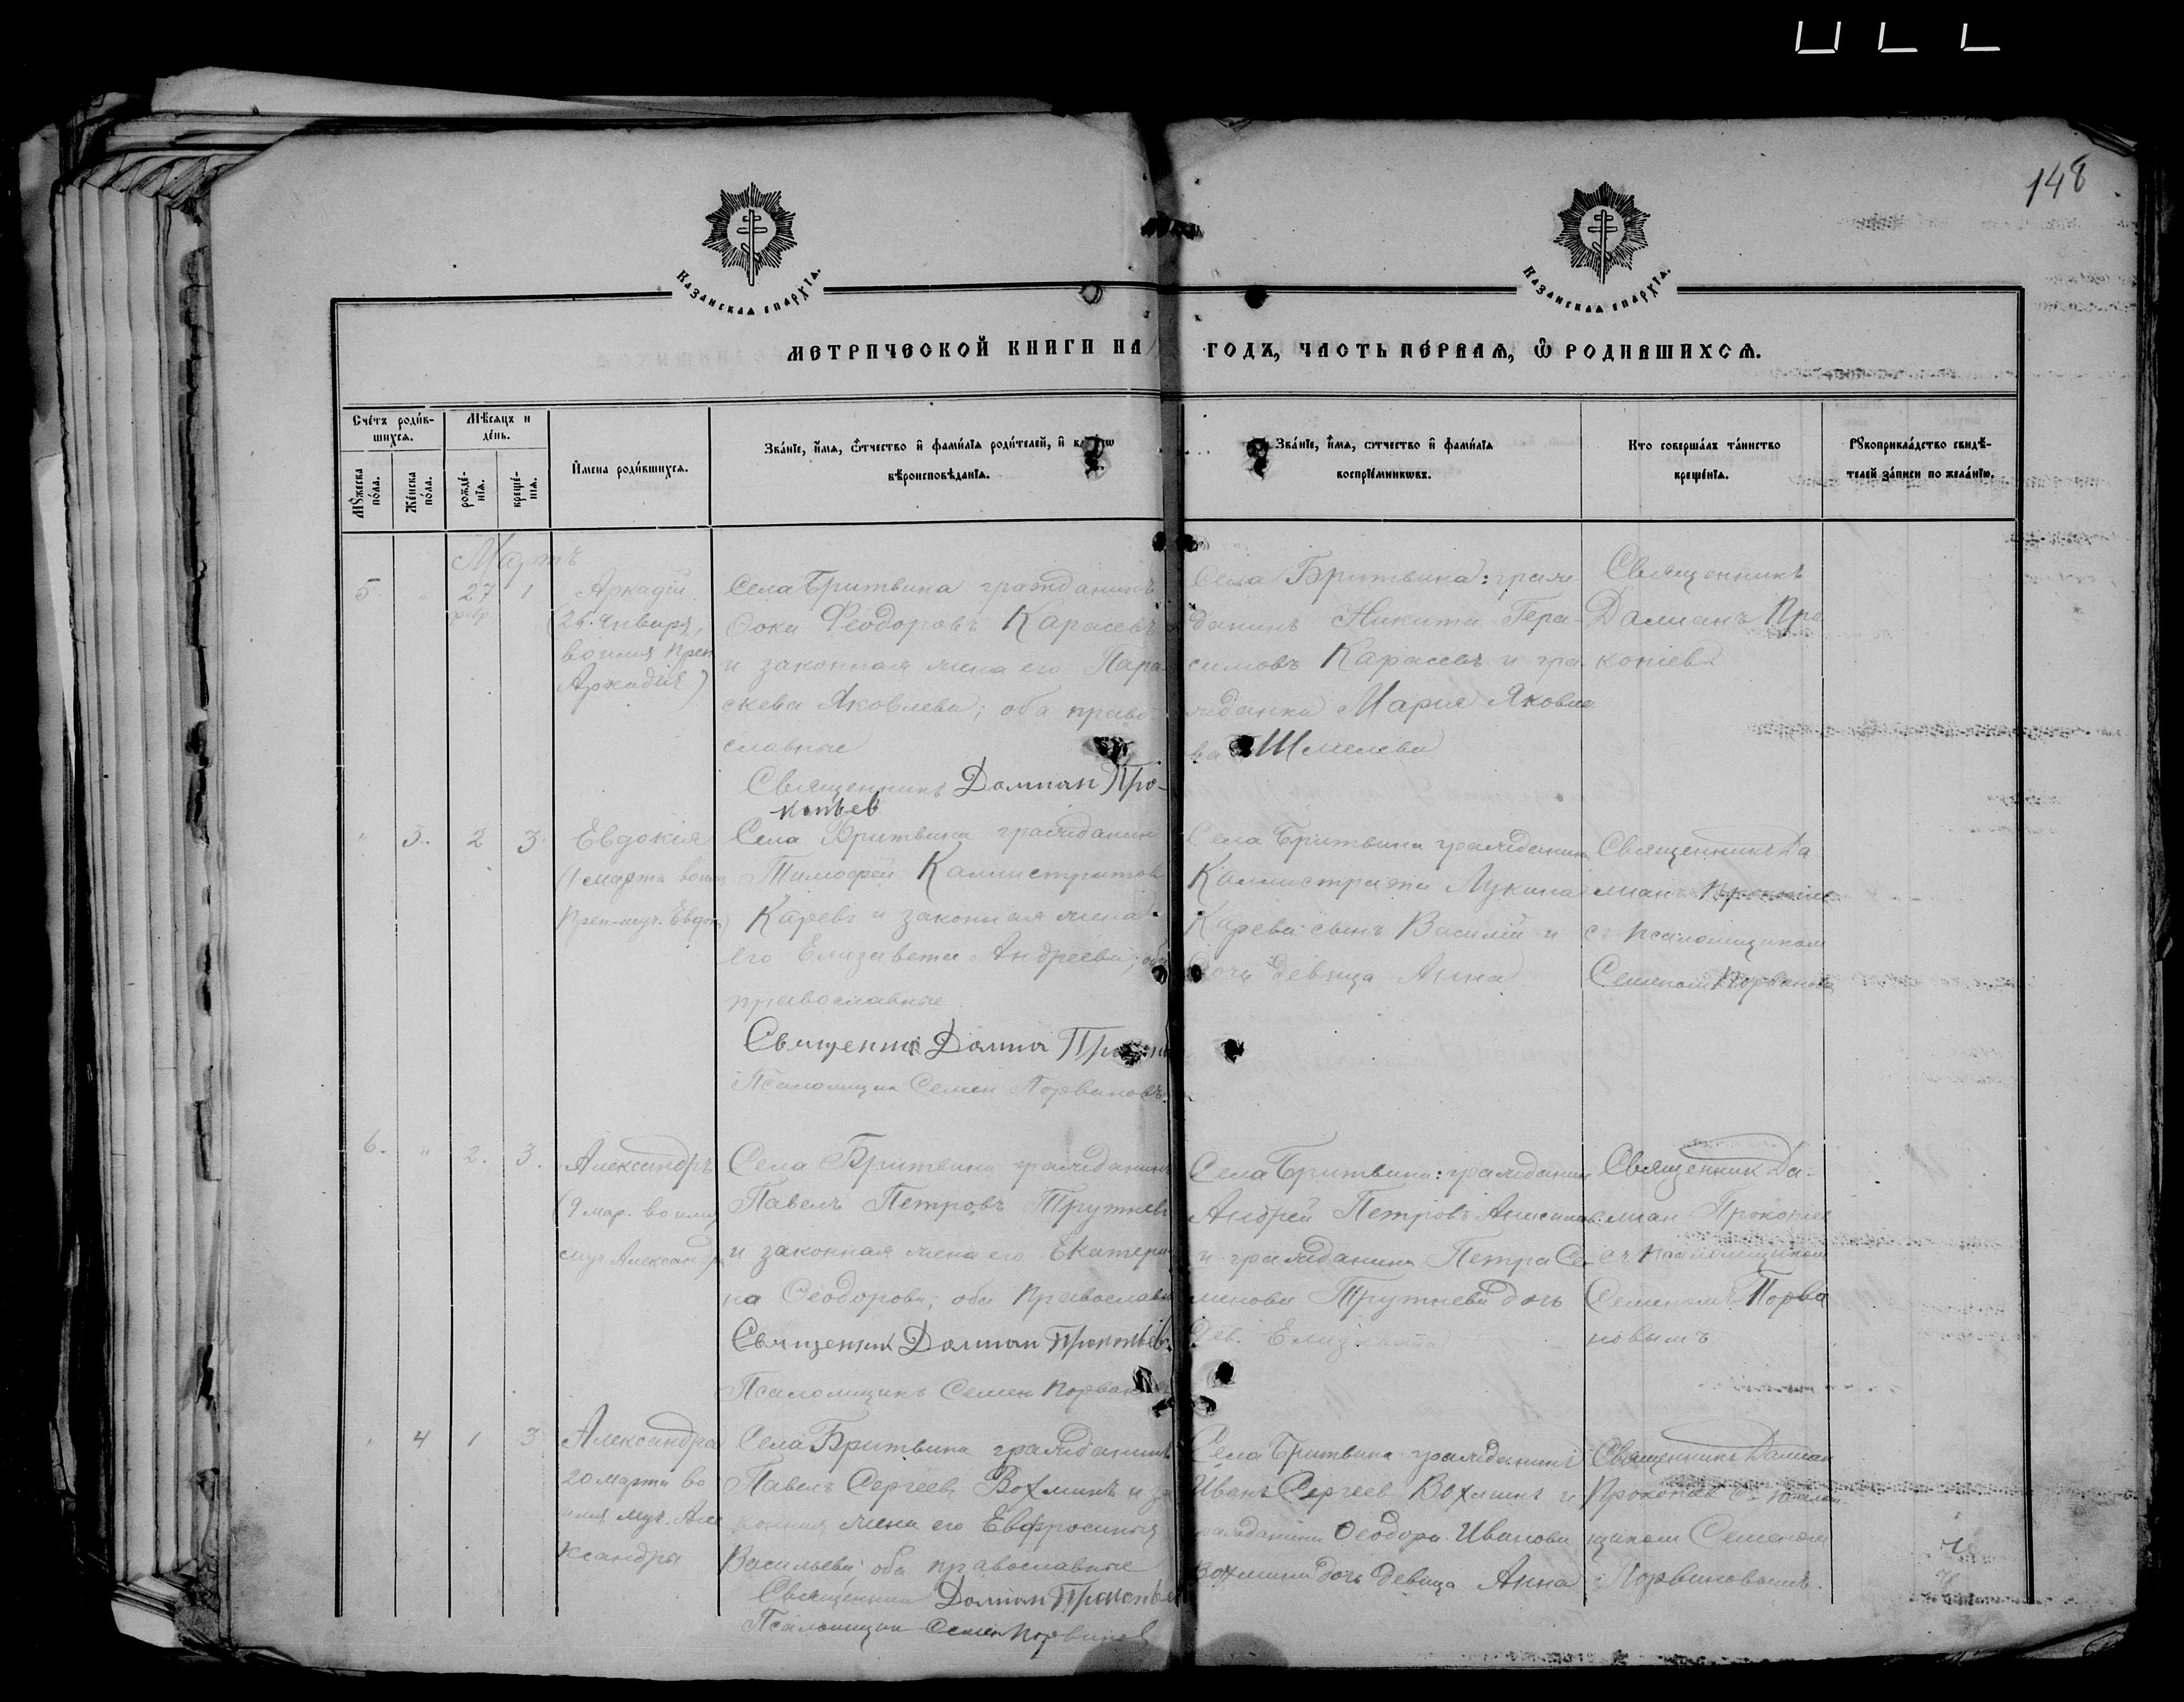 148
Казанская епархїѧ.
Казанская епархїѧ.
МЕТРИЧЕСКОЙ КНИГИ НА ГОДЪ, ЧАСТЬ ПЕ́РВАЯ, Ѿ РОДИВШИХСЯ.
Сче́тъ роди́в-
шихсѧ.
Мѣ́сяцъ и
де́нь.
Мꙋ́жеска
по́ла.
Же́нска
по́ла.
рожде́-
нїѧ.
креще́-
нїѧ.
И҆мена роди́вшихсѧ.
Зва́нїе, и҆́мѧ, ѻ҆́тчество и҆ фами́лїѧ роди́телей, и҆
вѣроисповѣ́данїѧ.
Зва́нїе, и҆́мѧ, ѻтчество и҆ фами́лїѧ
воспрїе́мникѡвъ.
Кто совершáлъ та́инство
креще́нїѧ.
Рꙋкоприкла́дство свидѣ́-
телей за́писи по жела́нїю.
Мартъ
5 " 27 1
февр.
Аркадій
(26. Января,
во имя преп
Аркадія)
Села Бритвина гражданинъ
Ѳока Ѳеодоровъ Карасевъ
и законная жена его Пара
скева Яковлева; оба право
славные
Священникъ Домиан Про-
копьев
Села Бритвина: граж
данинъ Никита Гера-
симовъ Карасевъ и гра
жданка Мария Яковле
ва Шмелева
Священникъ
Дамианъ Про
копіев
" 3. 2 3.
Евдокія
(1 марта во имя
Преп-муч. Евдок)
Села Бритвина гражданин
Тимофей Каллистратов
Карев и законная жена
его Елизавета Андреева; оба
православные
Священник Домиан
Псаломщик Семен Порвановъ
Села Бритвина гражданина
Каллистрата Лукина
Карева: сынъ Василій и
дочь девица Анна
Священникъ Да
мианъ Прокопиев
съ псаломщиком
Семеном Порванов
6. " 2. 3.
Александръ
(9 мар. во имя
муч. Александра
Села Бритвина гражданинъ
Павелъ Петровъ Трутнев
и законная жена его Екатери
на Ѳеодорова; оба Православн
Священник Домиан Прокопьев.
Псаломщикъ Семен Порванов
Села Бритвина: гражданин
Андрей Петровъ Анисимов
и гражданина Петра Се
менова Трутнева дочь
дев. Елизавета
Священник Да-
миан Прокопиев
съ псаломщиком
Семеномъ Порва
новымъ
" 4 1 3
Александра
20 марта во
имя муч. Але
ксандры
Села Бритвина гражданинъ
Павелъ Сергеев Вохминъ и за
конная жена его Евфросиния
Васильева; оба православные
Священник Домиан Прокопье
Псаломщик Семен Порванов
Села Бритвина гражданинъ
Иванъ Сергеев Вохминъ и
гражданина Ѳеодора Иванова
Вохмина дочь девица Анна
Священникъ Дамиан
Прокопіев съ псалом-
щиком Семеном
Порвановымъ.